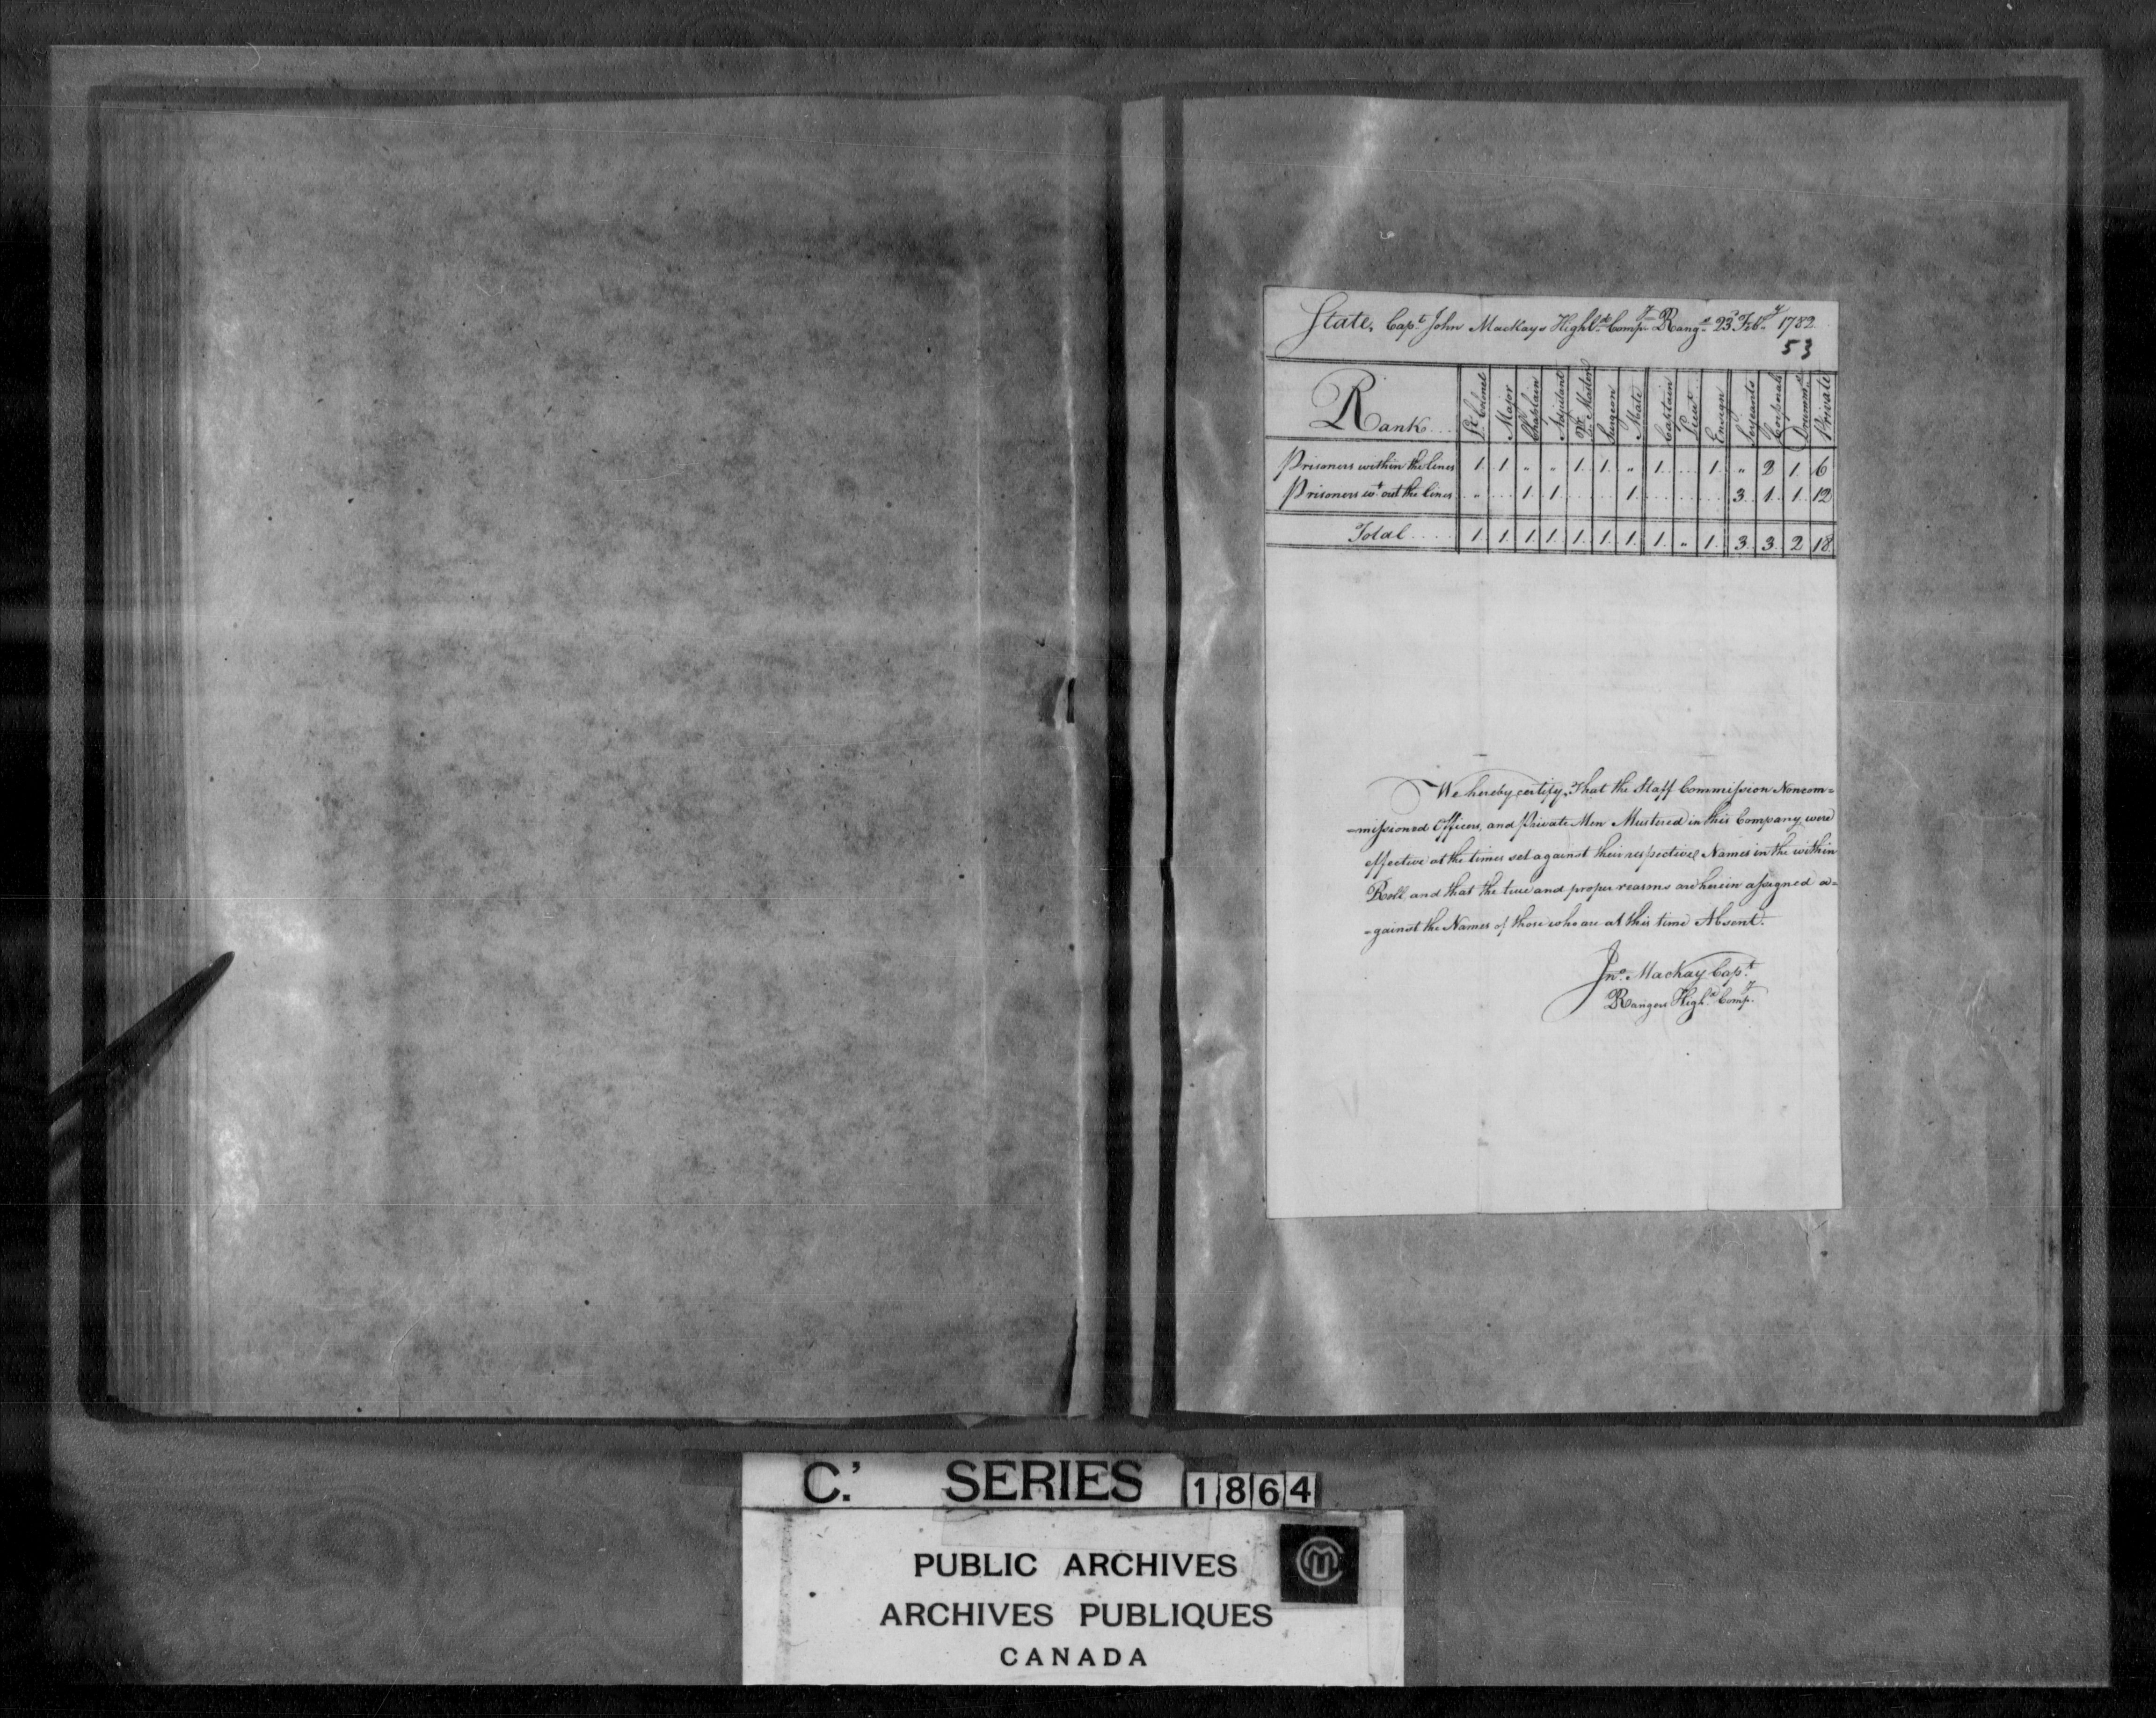 State, Capt. John Mackays Highld. Compy. Rangs. 23d. Feby. 1782
53
Rank Lt. Colonel Major Chaplain Adjutant Qr. Master Surgeon Mate Captain Lieut. Ensign Serjeants Corporals Drumms. Private
Prisoners within the lines 1 1 " " 1 1 " 1 1 " 2 1 6
Prisoners wt. out the lines " 1 1 1 3 1 1 12
Total 1 1 1 1 1 1 1 1 " 1 3 3 2 18
We hereby certify, That the Staff Commission Noncom=
=missioned Officers, and Private Men Mustered in this Company were
effective at the times set against their respective Names in the within
Roll, and that the true and proper reasons are herein assigned a=
=gainst the Names of those who are at this time Absent.
Jno. Mackay Capt.
Rangers Highd. Compy.
C. SERIES 1864
PUBLIC ARCHIVES
ARCHIVES PUBLIQUES
CANADA